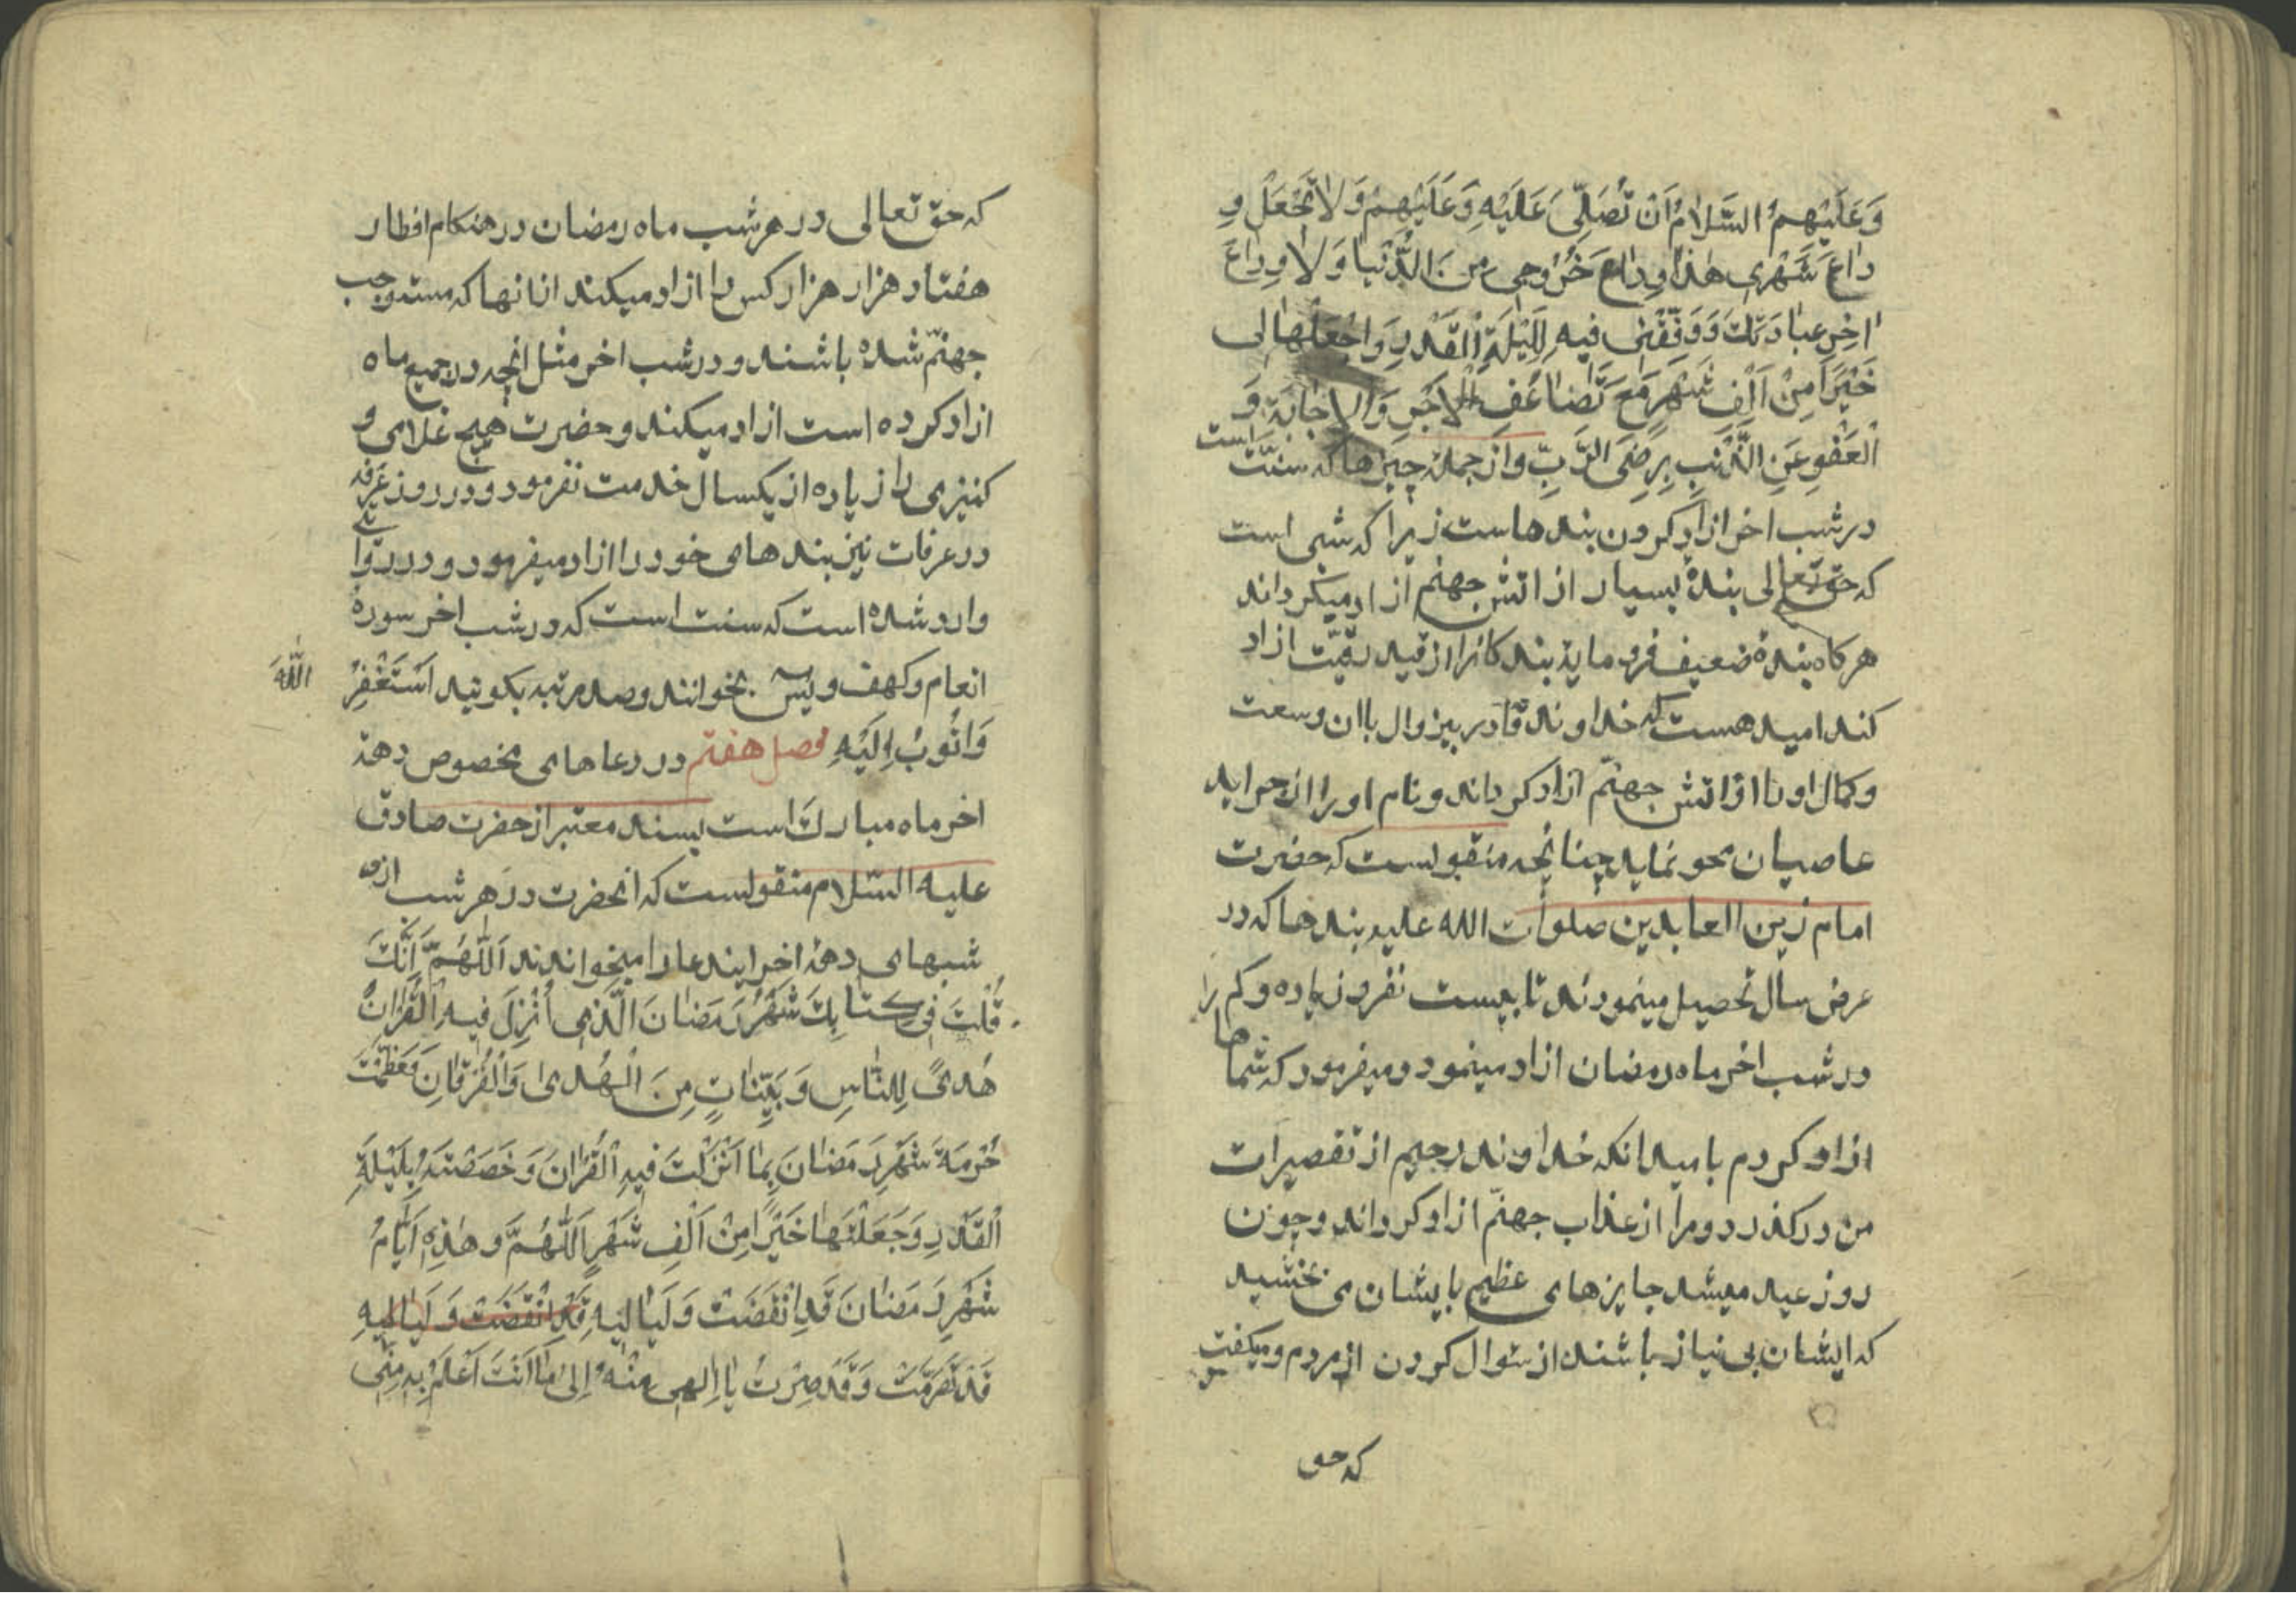 وَعَلَيْهِمُ السَّلامُ اَنْ تُصَلِّىَ عَلَيْهِ وَعَلَيْهِمْ وَلاتَجْعَلْ وِ
داعَ شَهْرى هٰذا وِداعَ خُرُوجى مِنَ الدُّنْيا وَلا وِداعَ
اخِرِ عِبادَتِكَ وَوَفِّقْنى فيهِ لِلَيْلَةِ الْقَدْرِ وَاجْعَلْها لى
خَيْرًا مِنْ اَلْفِ شَهْرٍ مَعَ تَضاعُفِ الاَجْرِ وَالاِجابَةِ وَ
الْعَفْوِ عَنِ الذَّنْبِ بِرِضَى الرَّبِّ واز جمله چيزها كه سنّت است
در شب اخر ازاد كردن بندهاست زيرا كه شبى است
كه حق تعالى بندهٔ بسيار از اتش جهنم ازاد ميكرداند
هركاه بندهٔ ضعيف فرومايه بندكانرا از قيد رقيّت ازاد
كند اميد هست كه خداوند قادر بيزوال باان وسعت
وكمال اورا از اتش جهنّم ازاد كرداند ونام اورا از جرايد
عاصيان محو نمايد چنانچه منقولست كه حضرت
امام زين العابدين صلوات الله عليه بندها كه در
عرض سال تحصيل مينمودند تا بيست نفر و زياده وكم را
در شب اخر ماه رمضان ازاد مينمود و ميفرمود كه شماها
ازاد كردم باميد انكه خداوند رحيم از تقصيرات
من دركذرد ومرا از عذاب جهنّم ازاد كرداند وچون
روز عيد ميشد جايزهاى عظيم بايشان مى بخشيد
كه ايشان بى نياز باشند از سئوال كردن از مردم وميكفت
كه حق
كه حق تعالى در هر شب ماه رمضان در هنكام افطار
هفتاد هزار هزار كس را ازاد ميكند از انها كه مستوجب
جهنّم شده باشند و در شب اخر مثل انچه در جميع ماه
ازاد كرده است ازاد ميكند وحضرت هيچ غلامى و
كنيزى را زياده از يكسال خدمت نفرمود و در روز عرفه
در عرفات نيز بندهاى خود را ازاد ميفرمود و در روايتى
وارد شده است كه سنت است كه در شب اخر سورهٔ
انعام وكهف ويس بخوانند وصد مرتبه بكويند اَسْتَغْفِرُ اللّٰهَ
وَاَتُوبُ اِلَيْهِ فصل هفتم در دعاهاى مخصوص دههٔ
اخر ماه مبارك است بسند معتبر از حضرت صادق
عليه السّلام منقولست كه انحضرت در هر شب از
شبهاى دههٔ اخر ايندعا را ميخواندند اَللّٰهُمَّ اِنَّكَ
قُلْتَ فى كِتابِكَ شَهْرُ رَمَضانَ الَّذى اُنْزِلَ فيهِ الْقُرْانُ
هُدىً لِلنّاسِ وَبَيِّناتٍ مِنَ الْهُدى وَالْفُرْقانِ فَعَظَّمْتَ
حُرْمَةَ شَهْرِ رَمَضانَ بِما اَنْزَلْتَ فيهِ الْقُرْانَ وَخَصَصْتَهُ بِلَيْلَةِ
الْقَدْرِ وَجَعَلْتَها خَيْرًا مِنْ اَلْفِ شَهْرٍ اَللّٰهُمَّ وهٰذِهِ اَيّامُ
شَهْرِ رَمَضانَ قَدِ انْقَضَتْ وَلَياليهِ قَدِ انْقَضَتْ وَلَياليهِ
قَدْ تَصَرَّمَتْ وَقَدْ صِرْتُ يا اِلٰهى مِنْهُ اِلى ما اَنْتَ اَعْلَمُ بِهِ مِنّى